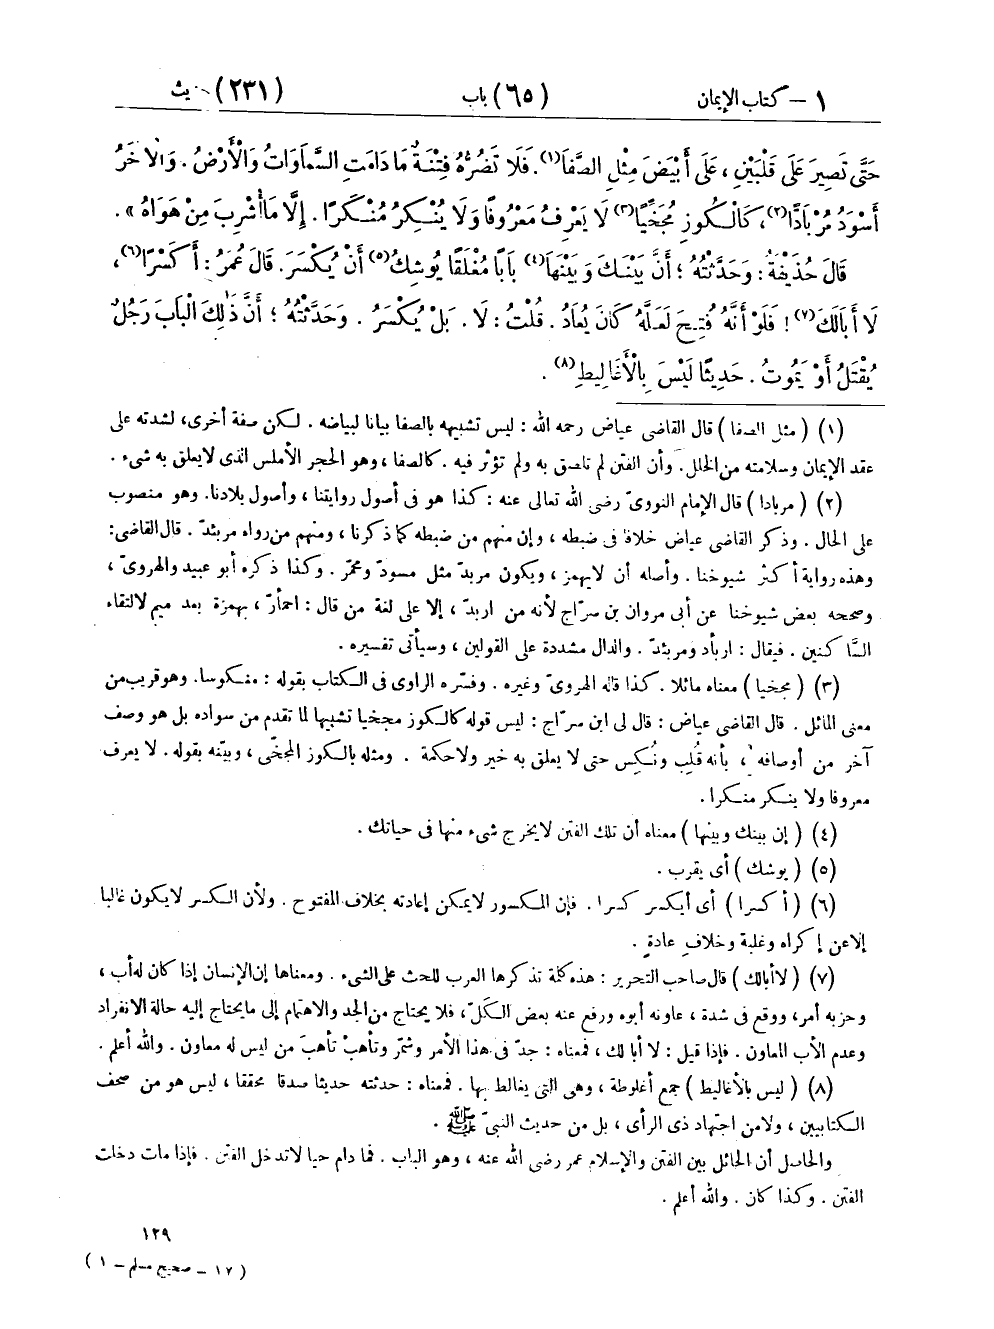 ١ – كتاب الإيمان (٦٥) باب (٢٣١) يث
حَتَّى تَصِيرَ عَلَى قَلْبَيْنِ ، عَلَى أَبْيَضَ مِثْلِ الصَّفَا(١) . فَلَا تَضُرُّهُ فِتْنَةٌ مَا دَامَتِ السَّمَاوَاتُ وَالْأَرْضُ . وَالْآخَرُ
أَسْوَدُ مُرْبَادًّا(٢) ، كَالْكُوزِ مُجَخِّيًا(٣) لَا يَعْرِفُ مَعْرُوفًا وَلَا يُنْكِرُ مُنْكَرًا . إِلَّا مَا أُشْرِبَ مِنْ هَوَاهُ » .
قَالَ حُذَيْفَةُ : وَحَدَّثْتُهُ ؛ أَنَّ بَيْنَكَ وَبَيْنَهَا(٤) بَابًا مُغْلَقًا يُوشِكُ(٥) أَنْ يُكْسَرَ. قَالَ عُمَرُ : أَكَسْرًا(٦) ،
لَا أَبَالَكَ(٧) ! فَلَوْ أَنَّهُ فُتِحَ لَعَلَّهُ كَانَ يُعَادُ . قُلْتُ : لَا . بَلْ يُكْسَرُ . وَحَدَّثْتُهُ ؛ أَنَّ ذَلِكَ الْبَابَ رَجُلٌ
يُقْتَلُ أَوْ يَمُوتُ . حَدِيثًا لَيْسَ بِالْأَغَالِيطِ(٨) .
(١) ( مثل الصفا ) قال القاضى عياض رحمه الله : ليس تشبيهه بالصفا بيانا لبياضه . لكن صفة أخرى، لشدته على
عقد الإيمان وسلامته من الخلل . وأن الفتن لم تلصق به ولم تؤثر فيه . كالصفا ، وهو الحجر الأملس الذى لايعلق به شىء .
(٢) ( مربادا ) قال الإمام النووىّ رضى الله تعالى عنه : كذا هو فى أصول روايتنا ، وأصول بلادنا. وهو منصوب
على الحال . وذكر القاضى عياض خلافا فى ضبطه ، وإن منهم من ضبطه كما ذكرنا ، ومنهم من رواه مربئدّ . قال القاضى:
وهذه رواية أكثر شيوخنا . وأصله أن لايهمز ، ويكون مربدّ مثل مسودّ ومحمرّ . وكذا ذكره أبو عبيد والهروىّ ،
وصححه بعض شيوخنا عن أبى مروان بن سرّاج لأنه من اربدّ ، إلا على لغة من قال : احمأرّ ، بهمزة بعد ميم لالتقاء
السّاكنين . فيقال : اربأد ومربئدّ . والدال مشددة على القولين ، وسيأتى تفسيره .
(٣) ( مجخيا ) معناه مائلا . كذا قاله الهروىّ وغيره . وفسّره الراوى فى الكتاب بقوله : منكوسا. وهو قريب من
معنى المائل . قال القاضى عياض : قال لى ابن سرّاج : ليس قوله كالكوز مجخيا تشبيها لما تقدم من سواده بل هو وصف
آخر من أوصافه ، بأنه قُلِب ونُكِس حتى لا يعلق به خير ولاحكمة . ومثله بالكوز المجخّى ، وبيّنه بقوله . لا يعرف
معروفا ولا ينكر منكرا .
(٤) ( إن بينك وبينها ) معناه أن تلك الفتن لايخرج شىء منها فى حياتك .
(٥) ( يوشك ) أى يقرب .
(٦) ( أكسرا ) أى أيكسر كسرا . فإن المكسور لايمكن إعادته بخلاف المفتوح . ولأن الكسر لايكون غالبا
إلا عن إكراه وغلبة وخلاف عادةٍ .
(٧) ( لا أبالك ) قال صاحب التحرير : هذه كلمة تذكرها العرب للحث على الشىء . ومعناها إن الإنسان إذا كان له أب ،
وحزبه أمر، ووقع فى شدة ، عاونه أبوه ورفع عنه بعض الكَلّ، فلا يحتاج من الجد والاهتمام إلى مايحتاج إليه حالة الانفراد
وعدم الأب المعاون . فإذا قيل : لا أبا لك ، فمعناه : جدّ فى هذا الأمر وشمّر وتأهبْ تأهبَ من ليس له معاون . والله أعلم .
(٨) ( ليس بالأغاليط ) جمع أغلوطة ، وهى التى يغالط بها . فمعناه : حدثته حديثا صدقا محققا ، ليس هو من صحف
الكتابيين ، ولا من اجتهاد ذى الرأى ، بل من حديث النبىّ ﷺ .
والحاصل أن الحائل بين الفتن والإسلام عمر رضى الله عنه ، وهو الباب . فما دام حيا لاتدخل الفتن . فإذا مات دخلت
الفتن . وكذا كان . والله أعلم .
١٢٩
( ١٧ – صحيح مسلم – ١ )